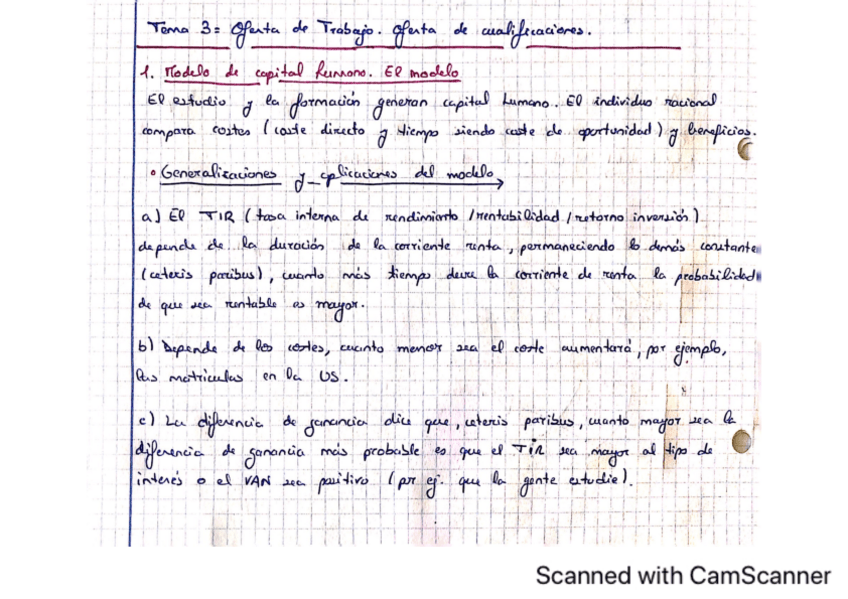 Tema 3= Oferta de Trabajo. Oferta de cualificaciones.
1. Modelo de capital humano. El modelo
El estudio y la formación generan capital humano. El individuo racional
compara costes (coste directo y tiempo siendo coste de oportunidad) y beneficios.
• Generalizaciones y aplicaciones del modelo
a) El TIR (tasa interna de rendimiento /rentabilidad /retorno inversión)
depende de la duración de la corriente renta, permaneciendo lo demás constante
(ceteris paribus), cuanto más tiempo dure la corriente de renta la probabilidad
de que sea rentable es mayor.
b) Depende de los costes, cuanto menor sea el coste aumentará, por ejemplo,
las matrículas en la US.
c) La diferencia de ganancia dice que, ceteris paribus, cuanto mayor sea la
diferencia de ganancia más probable es que el TIR sea mayor al tipo de
interés o el VAN sea positivo (por ej. que la gente estudie).
Scanned with CamScanner